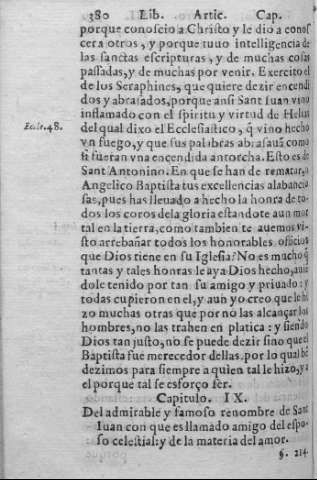 380 Lib. Artic. Cap.
porque conoscio a Christo y le dio a conos
cera otros, y porque tuuo intelligencia de
las sanctas escripturas, y de muchas cosas
passadas, y de muchas por venir. Exercito el
de los Seraphines, que quiere dezir encendi
dos y abrasados, porque ansi Sant Iuan vino
inflamado con el spiritu y virtud de Helias
Eccle. 48.
del qual dixo el Ecclesiastico, q̃ vino hecho
vn fuego, y que sus palabras abrasauã como
si fueran vna encendida antorcha. Esto es de
Sant Antonino. En que se han de rematar, o
Angelico Baptista tus excellencias alabancio
sas, pues has lleuado a hecho la honra de to-
dos los coros dela gloria estandote aun mor
tal en la tierra, como tambien te auemos vi-
sto arrebañar todos los honorables officios
que Dios tiene en su Iglesia? No es mucho q̃
tantas y tales honras le aya Dios hecho, auiẽ
dole tenido por tan su amigo y priuado: y
todas cupieron en el, y aun yo creo que le hi
zo muchas otras que por no las alcançar los
hombres, no las trahen en platica: y siendo
Dios tan justo, no se puede dezir sino que el
Baptista fue merecedor dellas. por lo qual bẽ
dezimos para siempre a quien tal le hizo, y a
el porque tal se esforço ser.
Capitulo. IX.
Del admirable y famoso renombre de Sant
Iuan con que es llamado amigo del espo-
so celestial: y de la materia del amor.
§. 214